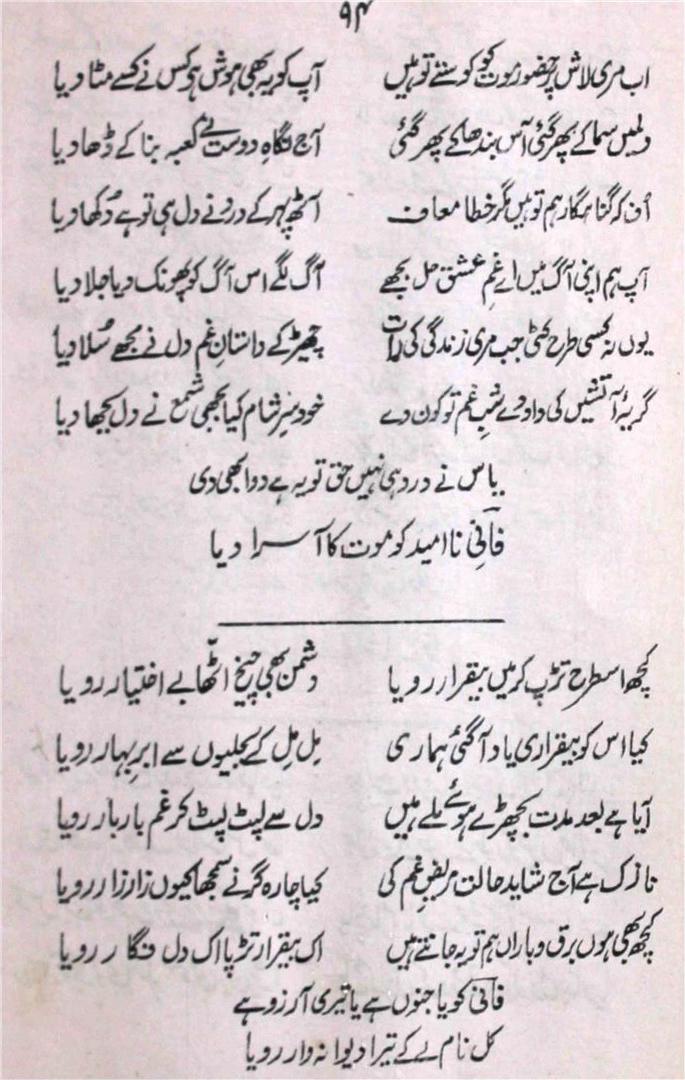 ۹۴
اب مری لاش پر حضور موت کو کوستے تو ہیں آپ کو یہ بھی ہوش ہے کس نے کسے مٹا دیا
دلمیں سما کے پھر گئی آس بندھا کے پھر گئی آج نگاہِ دوست نے کعبہ بنا کے ڈھا دیا
اُف کہ گناہگار ہم تو ہیں مگر خطا معاف آٹھ پہر کے درد نے دل ہی تو ہے دُکھا دیا
آپ ہم اپنی آگ میں اے غمِ عشق جل بجھے آگ لگے اس آگ کو پھونک دیا جلا دیا
یوں نہ کسی طرح کٹی جب مری زندگی کی رات چھیڑ کے داستانِ غم دل نے مجھے سُلا دیا
گریۂ آتشیں کی داد دے شبِ غم تو کون دے خود سرِ شام کیا بجھی شمع نے دل بجھا دیا
یاس نے درد ہی نہیں حق تو یہ ہے دوا بھی دی
فانیِ نا امید کو موت کا آسرا دیا
کچھ اسطرح تڑپ کر میں بیقرار رویا دشمن بھی چیخ اٹھا بے اختیار رویا
کیا اس کو بیقراری یاد آگئی ہماری مِل مِل کے بجلیوں سے ابرِ بہار رویا
آیا ہے بعد مدت بچھڑے ہوئے ملے ہیں دل سے لپٹ لپٹ کر غم بار بار رویا
نازک ہے آج شاید حالت مریضِ غم کی کیا چارہ گر نے سمجھا کیوں زار زار رویا
کچھ بھی ہوں برق و باراں ہم تو یہ جانتے ہیں اک بیقرار تڑپا اک دل فگار رویا
فانی کو یا جنوں ہے یا تیری آرزو ہے
کل نام لے کے تیرا دیوانہ وار رویا